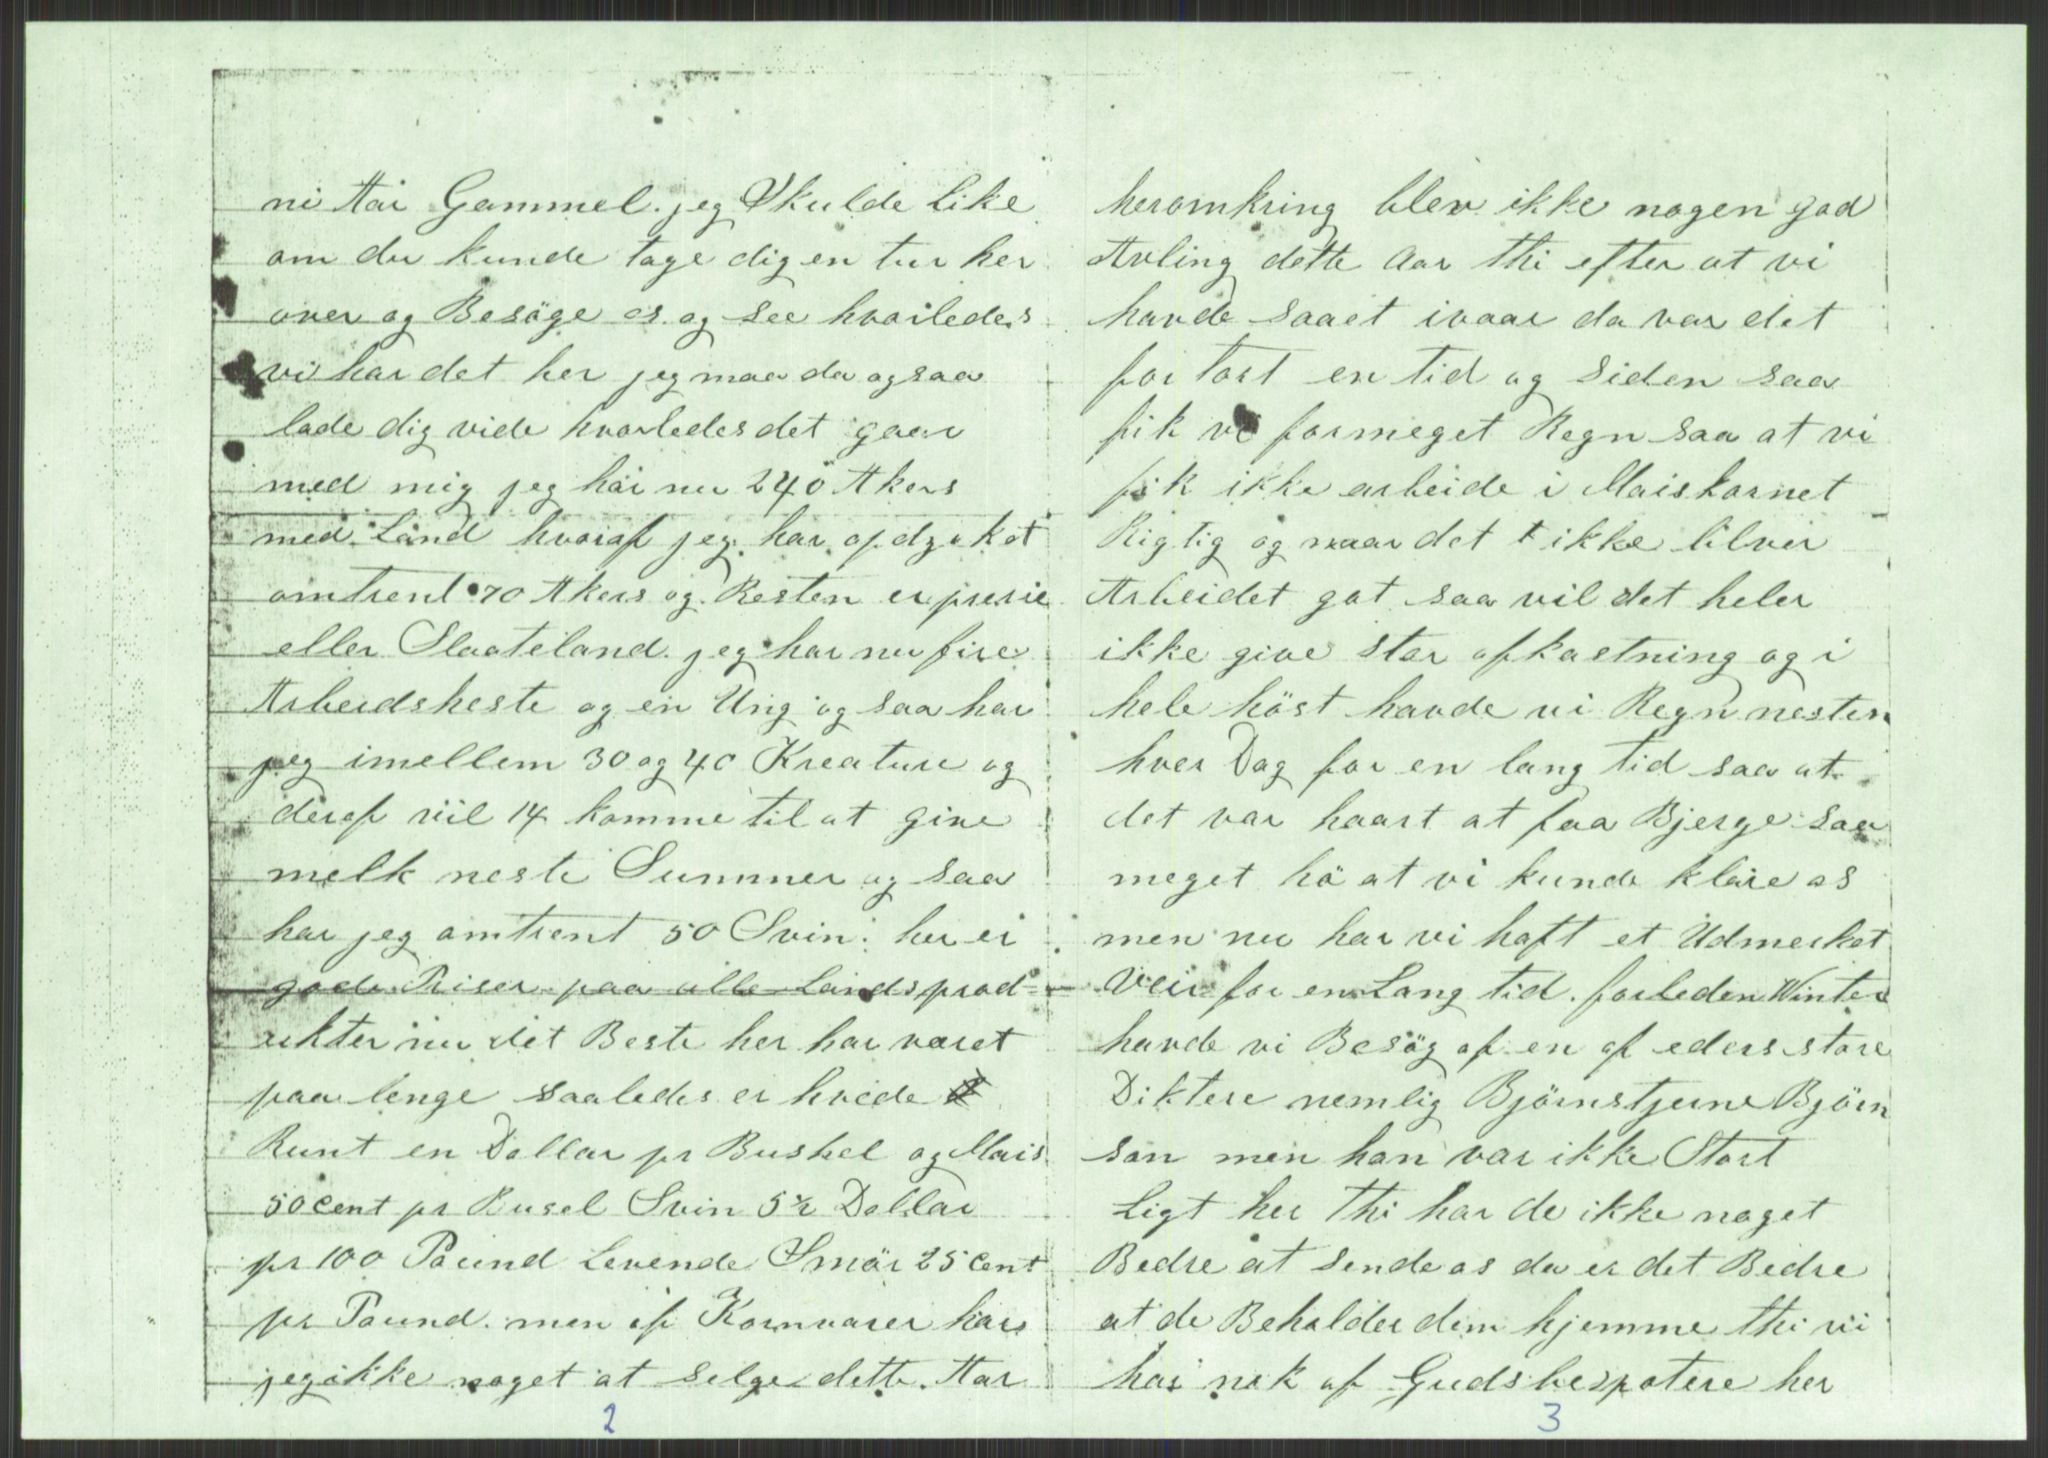 ni Aar Gammel. jeg Skulde like
om du kunde tage dig en tur her
over og Besöge os og see hvorledes
vi har det her jeg maa da ogsaa
lade dig vide hvorledes det gaar
med mig jeg har nu 240 Akers
med Land hvoraf jeg har opdyrket
omtrent 70 Akers og Resten er prerie
eller Slaateland. jeg har nu fire
Arbeidsheste og en Ung og saa har
jeg imellem 30 og 40 Kreature og
deraf vil 14 komme til at give
melk neste Summer og saa
har jeg omtrent 50 Svin. her er
gode Priser paa alle Landsprod-
ukter nu det Beste her har været
paa lenge saaledes er hvede
Runt en Dollar pr Bushel og Mais
50 cent pr Busel Svin 5½ Dollar
pr 100 Pound Levende Smör 25 cent
pr Pound. men af Kornvarer har
jeg ikke noget at selge dette Aar
2
heromkring blev ikke nogen god
Avling dette Aar thi efter at vi
havde saaet ivaar da var det
for tort en tid og Siden saa
fik vi formeget Regn saa at vi
fik ikke arbeide i Maiskornet
Rigtig og naar det ikke bliver
Arbeidet got saa vil det heler
ikke give stor afkastning og i
hele höst havde vi Regn nesten
hver Dag for en lang tid saa at
det var haart at faa Bjerge saa
meget hö at vi kunde klare os
men nu har vi haft et Udmerket
Veir for en Lang tid. forleden Winter
havde vi Besög af en af eders store
Diktere nemlig Björnstjerne Björn
son men han var ikke Stort
Ligt her thi har de ikke noget
Bedre at sende os da er det Bedre
at de Beholder dem hjemme thi vi
har nok af Gudsbespotere her
3